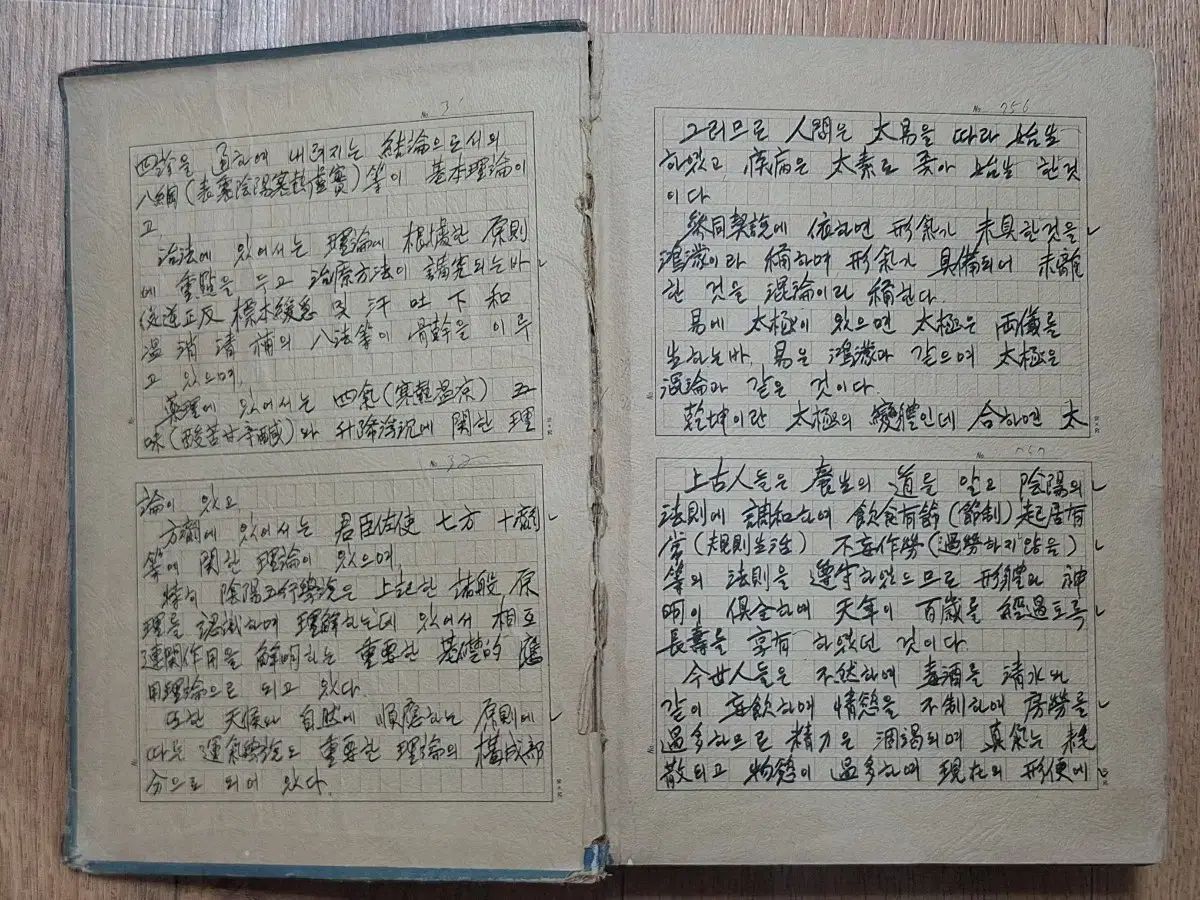 No 3
四診을 通하여 내려지는 結論으로서의
八綱(表裏陰陽寒熱虛實)等이 基本理論이
고
治法에 있어서는 理論에 根據한 原則
에 重點을 두고 治療方法이 講究되는바
從逆正反 標本緩急 및 汗 吐 下 和
溫 消 清 補의 八法等이 骨幹을 이루
고 있으며,
藥理에 있어서는 四氣(寒熱溫凉) 五
味(酸苦甘辛鹹)와 升降浮沉에 関한 理
No 32
論이 있고,
方劑에 있어서는 君臣佐使 七方 十劑
等에 関한 理論이 있으며,
特히 陰陽五行學說은 上記한 諸般 原
理를 認識하며 理解하는데 있어서 相互
連関作用을 解明하는 重要한 基礎的 應
用理論으로 되고 있다.
또한 天候와 自然에 順應하는 原則에
따른 運氣學說도 重要한 理論의 構成部
分으로 되어 있다.
No 756
그러므로 人間은 太易을 따라 始生
하였고 疾病은 太素로 좇아 始生 한것
이다
參同契說에 依하면 形氣가 未具한것을
鴻濛이라 稱하며 形氣가 具備되어 未離
한 것을 混淪이라 稱한다.
易에 太極이 있으면 太極은 両儀를
生하는바, 易은 鴻濛과 같으며 太極은
混淪과 같은 것이다.
乾坤이란 太極의 變體인데 合하면 太
No 757
上古人들은 養生의 道를 알고 陰陽의
法則에 調和하여 飮食有節(節制) 起居有
常(規則生活) 不妄作勞(過勞하지 않음)
等의 法則을 遵守하였으므로 形體와 神
明이 俱全하여 天年이 百歲를 經過토록
長壽를 享有 하였던 것이다.
今世人들은 不然하여 毒酒를 清水와
같이 妄飮하여 情慾을 不制하여 房勞를
過多하므로 精力은 涸竭되며 眞氣는 耗
散되고 物慾이 過多하며 現在의 形便에